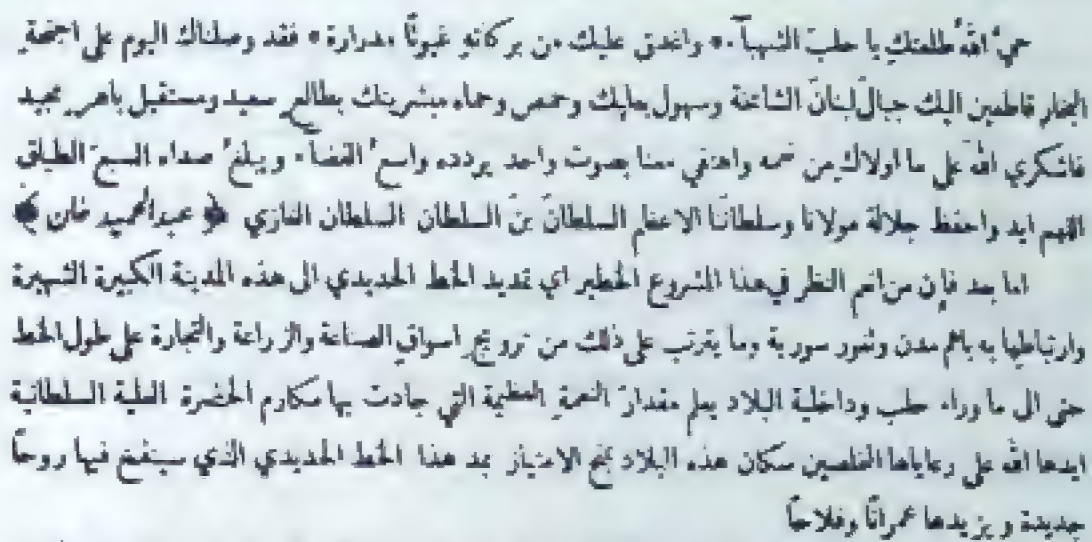 حيَّ اللهُ طلعتكِ يا حلبَ الشهبآء واغدق عليك من بركاتهِ غيوثًا مدرارة، فقد وصلناك اليوم على اجنحةِ
البخارِ قاطعين اليك جبالَ لبنانَ الشامخة وسهول بعلبك وحمص وحماه مبشرينك بطالعٍ سعيد ومستقبلٍ باهرٍ مجيد
فاشكري اللهَ على ما اولاك من نعمه واهتفي معنا بصوت واحد يردده واسعُ الفضآء ويبلغُ صداه السبعَ الطباق
اللهم ايد واحفظ جلالة مولانا وسلطاننا الاعظم السلطانَ بنَ السلطان السلطان الغازي ﴿ عبد الحميد خان ﴾
اما بعد فإن من انعم النظر في هذا المشروع الخطير اي تمديد الخط الحديدي الى هذه المدينة الكبيرة الشهيرة
وارتباطها به باهم مدن وثغور سورية وما يترتب على ذلك من ترويجِ اسواقِ الصناعة والزراعة والتجارة على طول الخط
حتى الى ما وراء حلب وداخلية البلاد يعلم مقدارَ النعمةِ العظيمة التي جادت بها مكارم الحضرة العلية السلطانية
ايدها الله على رعاياها المخلصين سكان هذه البلاد بمنح الامتيازِ بمد هذا الخط الحديدي الذي سينفخ فيها روحًا
جديدة ويزيدها عمرانًا وفلاحًا